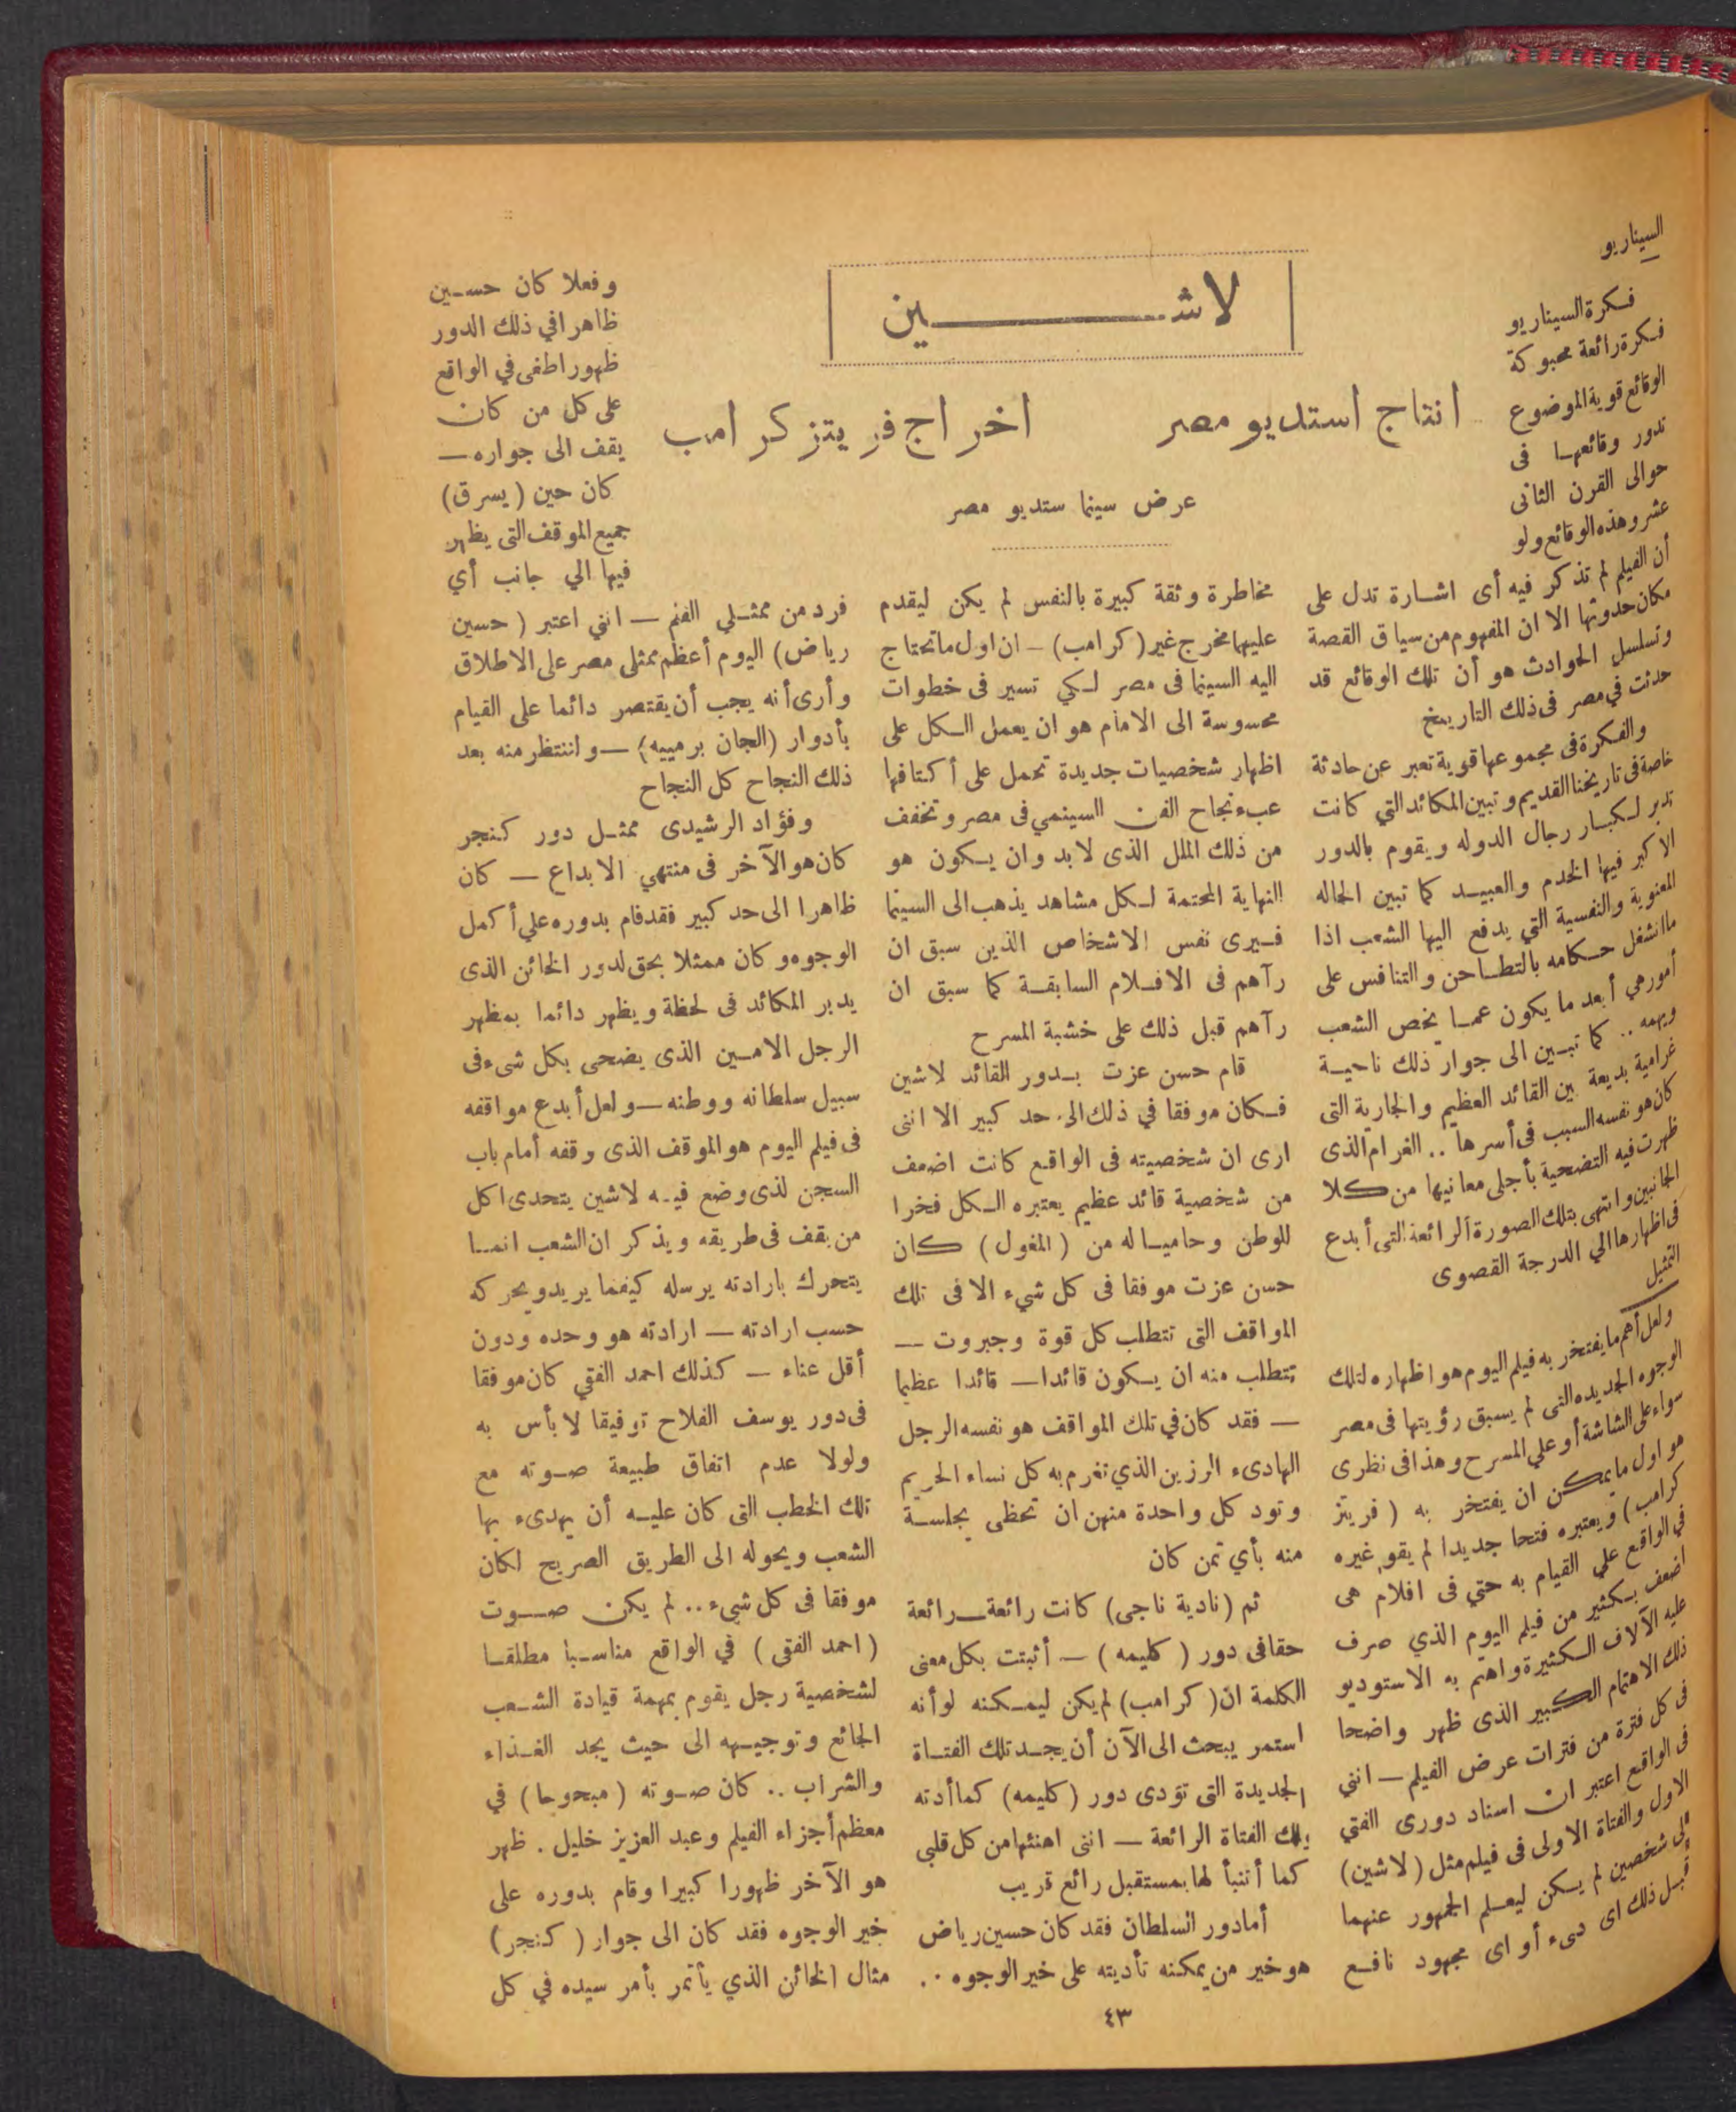 لاشـــــين
انتاج استديو مصر
اخراج فريتز كرامب
عرض سينما ستديو مصر
السيناريو
فكرة السيناريو
فكرة رائعة محبوكة
الوقائع قوية الموضوع
تدور وقائعها فى
حوالى القرن الثانى
عشر وهذه الوقائع ولو
أن الفيلم لم تذكر فيه أى اشارة تدل على
مكان حدوثها الا ان المفهوم من سياق القصة
وتسلسل الحوادث هو أن تلك الوقائع قد
حدثت في مصر فى ذلك التاريخ
والفكرة فى مجموعها قوية تعبر عن حادثة
خاصة فى تاريخنا القديم وتبين المكائد التي كانت
تدبر لكبار رجال الدوله ويقوم بالدور
الاكبر فيها الخدم والعبيد كما تبين الحاله
المعنوية والنفسية التي يدفع اليها الشعب اذا
ما انشغل حكامه بالتطاحن والتنافس على
أمور هي أبعد ما يكون عما يخص الشعب
ويهمه .. كما تبين الى جوار ذلك ناحية
غرامية بديعة بين القائد العظيم والجارية التى
كان هو نفسه السبب فى أسرها .. الغرام الذى
ظهرت فيه التضحية بأجلى معانيها من كلا
الجانبين وانتهى بتلك الصورة الرائعة التى أبدع
فى اظهارها الي الدرجة القصوى
التمثيل
ولعل أهم ما يفتخر به فيلم اليوم هو اظهاره لتلك
الوجوه الجديده التى لم يسبق رؤيتها فى مصر
سواء على الشاشة أو علي المسرح وهذا فى نظرى
هو اول ما يمكن ان يفتخر به ( فريتز
كرامب ) ويعتبره فتحا جديدا لم يقو غيره
في الواقع علي القيام به حتي فى افلام هى
اضعف بكثير من فيلم اليوم الذي صرف
عليه الآلاف الكثيرة واهتم به الاستوديو
ذلك الاهتمام الكبير الذى ظهر واضحا
فى كل فترة من فترات عرض الفيلم — انني
فى الواقع اعتبر ان اسناد دورى الفتي
الاول والفتاة الاولى فى فيلم مثل ( لاشين )
إلى شخصين لم يكن ليعلم الجمهور عنهما
قبل ذلك اى شىء أو اى مجهود نافع
مخاطرة وثقة كبيرة بالنفس لم يكن ليقدم
عليها مخرج غير ( كرامب ) — ان اول ما تحتاج
اليه السينما فى مصر لكي تسير فى خطوات
محسوسة الى الامام هو ان يعمل الكل على
اظهار شخصيات جديدة تحمل على أكتافها
عبء نجاح الفن السينمي فى مصر وتخفف
من ذلك الملل الذى لابد وان يكون هو
النهاية المحتمة لكل مشاهد يذهب الى السينما
فيرى نفس الاشخاص الذين سبق ان
رآهم فى الافلام السابقة كما سبق ان
رآهم قبل ذلك على خشبة المسرح
قام حسن عزت بدور القائد لاشين
فكان موفقا في ذلك الى حد كبير الا اننى
ارى ان شخصيته فى الواقع كانت اضعف
من شخصية قائد عظيم يعتبره الكل فخرا
للوطن وحاميا له من ( المغول ) كان
حسن عزت موفقا فى كل شيء الا فى تلك
المواقف التى تتطلب كل قوة وجبروت —
تتطلب منه ان يكون قائدا — قائدا عظيما
— فقد كان في تلك المواقف هو نفسه الرجل
الهادىء الرزين الذي تغرم به كل نساء الحريم
وتود كل واحدة منهن ان تحظى بجلسة
منه بأي ثمن كان
ثم ( نادية ناجى ) كانت رائعة — رائعة
حقا فى دور ( كليمه ) — أثبتت بكل معنى
الكلمة ان ( كرامب ) لم يكن ليمكنه لو أنه
استمر يبحث الى الآن أن يجد تلك الفتاة
الجديدة التى تؤدى دور ( كليمه ) كما أدته
تلك الفتاة الرائعة — اننى اهنئها من كل قلبي
كما أتنبأ لها بمستقبل رائع قريب
أما دور السلطان فقد كان حسين رياض
هو خير من يمكنه تأديته على خير الوجوه ..
وفعلا كان حسين
ظاهرا في ذلك الدور
ظهور اطغى في الواقع
على كل من كان
يقف الى جواره —
كان حين ( يسرق )
جميع الموقف التى يظهر
فيها الي جانب أي
فرد من ممثلي الفلم — انني اعتبر ( حسين
رياض ) اليوم أعظم ممثلى مصر على الاطلاق
وأرى أنه يجب أن يقتصر دائما على القيام
بأدوار ( الجان برمييه ) — واننتظر منه بعد
ذلك النجاح كل النجاح
وفؤاد الرشيدى ممثل دور كنجر
كان هو الآخر فى منتهي الابداع — كان
ظاهرا الى حد كبير فقد قام بدوره علي أكمل
الوجوه وكان ممثلا بحق لدور الخائن الذى
يدبر المكائد فى لحظة ويظهر دائما بمظهر
الرجل الامين الذى يضحى بكل شىء فى
سبيل سلطانه ووطنه — ولعل أبدع مواقفه
فى فيلم اليوم هو الموقف الذى وقفه أمام باب
السجن لذى وضع فيه لاشين يتحدى اكل
من يقف فى طريقه ويذكر ان الشعب انما
يتحرك بارادته يرسله كيفما يريد ويحركه
حسب ارادته — ارادته هو وحده ودون
أقل عناء — كذلك احمد الفقي كان موفقا
فى دور يوسف الفلاح توفيقا لا بأس به
ولولا عدم اتفاق طبيعة صوته مع
تلك الخطب التى كان عليه أن يهدىء بها
الشعب ويحوله الى الطريق الصريح لكان
موفقا فى كل شيء .. لم يكن صوت
( احمد الفقى ) في الواقع مناسبا مطلقا
لشخصية رجل يقوم بمهمة قيادة الشعب
الجائع وتوجيهه الى حيث يجد الغذاء
والشراب .. كان صوته ( مبحوحا ) في
معظم أجزاء الفيلم وعبد العزيز خليل . ظهر
هو الآخر ظهورا كبيرا وقام بدوره على
خير الوجوه فقد كان الى جوار ( كنجر )
مثال الخائن الذي يأتمر بأمر سيده في كل
٤٣